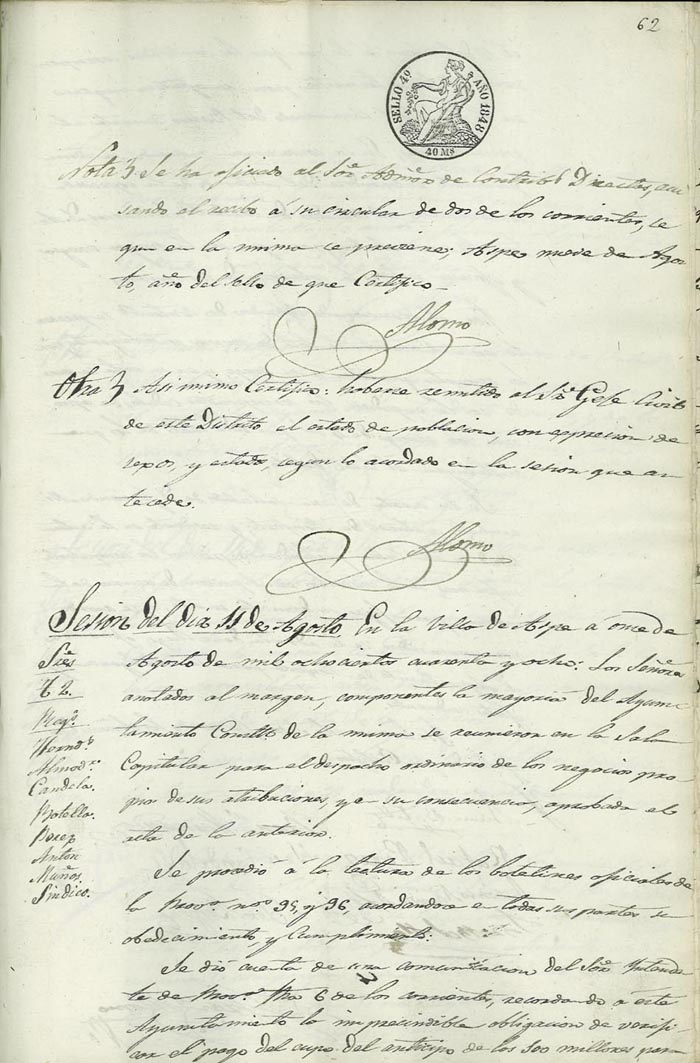 62
SELLO 4º AÑO 1848
40 Ms
Nota Se ha oficiado al Sor. Admor. de Contribs. Directas, acu
sando el recibo á su circular de dos de los corrientes, se
gun en la misma se previene; Aspe nueve de Agos
to, año del sello de que Certifico
Alonso
Otra Asi mismo Certifico: haberse remitido al Sr. Gefe Civil
de este Distrito el estado de poblacion, con expresion de
sexos, y estado, segun lo acordado en la sesion que an
tecede.
Alonso
Sesion del dia 11 de Agosto En la Villa de Aspe á once de
Agosto de mil ochocientos cuarenta y ocho: Los Señores
anotados al margen, componentes la mayoria del Ayun
tamiento Constl. de la misma se reunieron en la Sala
Capitular para el despacho ordinario de los negocios pro
pios de sus atribuciones, y en su consecuencia, aprobada el
acta de la anterior.
Sres
T. 2.
Regs.
Hernds.
Almodr.
Candela.
Botella.
Perez
Anton
Muños.
Sindico.
Se procedió á la lectura de los boletines oficiales de
la Prova. nos. 95, y 96, acordandose en todas sus partes su
obedecimiento, y Cumplimiento:
Se dió cuenta de una comunicacion del Sor. Intenden
te de Prova. fha 6 de los corrientes, recordando á este
Ayuntamiento la imprecindible obligacion de verifi
car el pago del cupo del anticipo de los 100 millones para